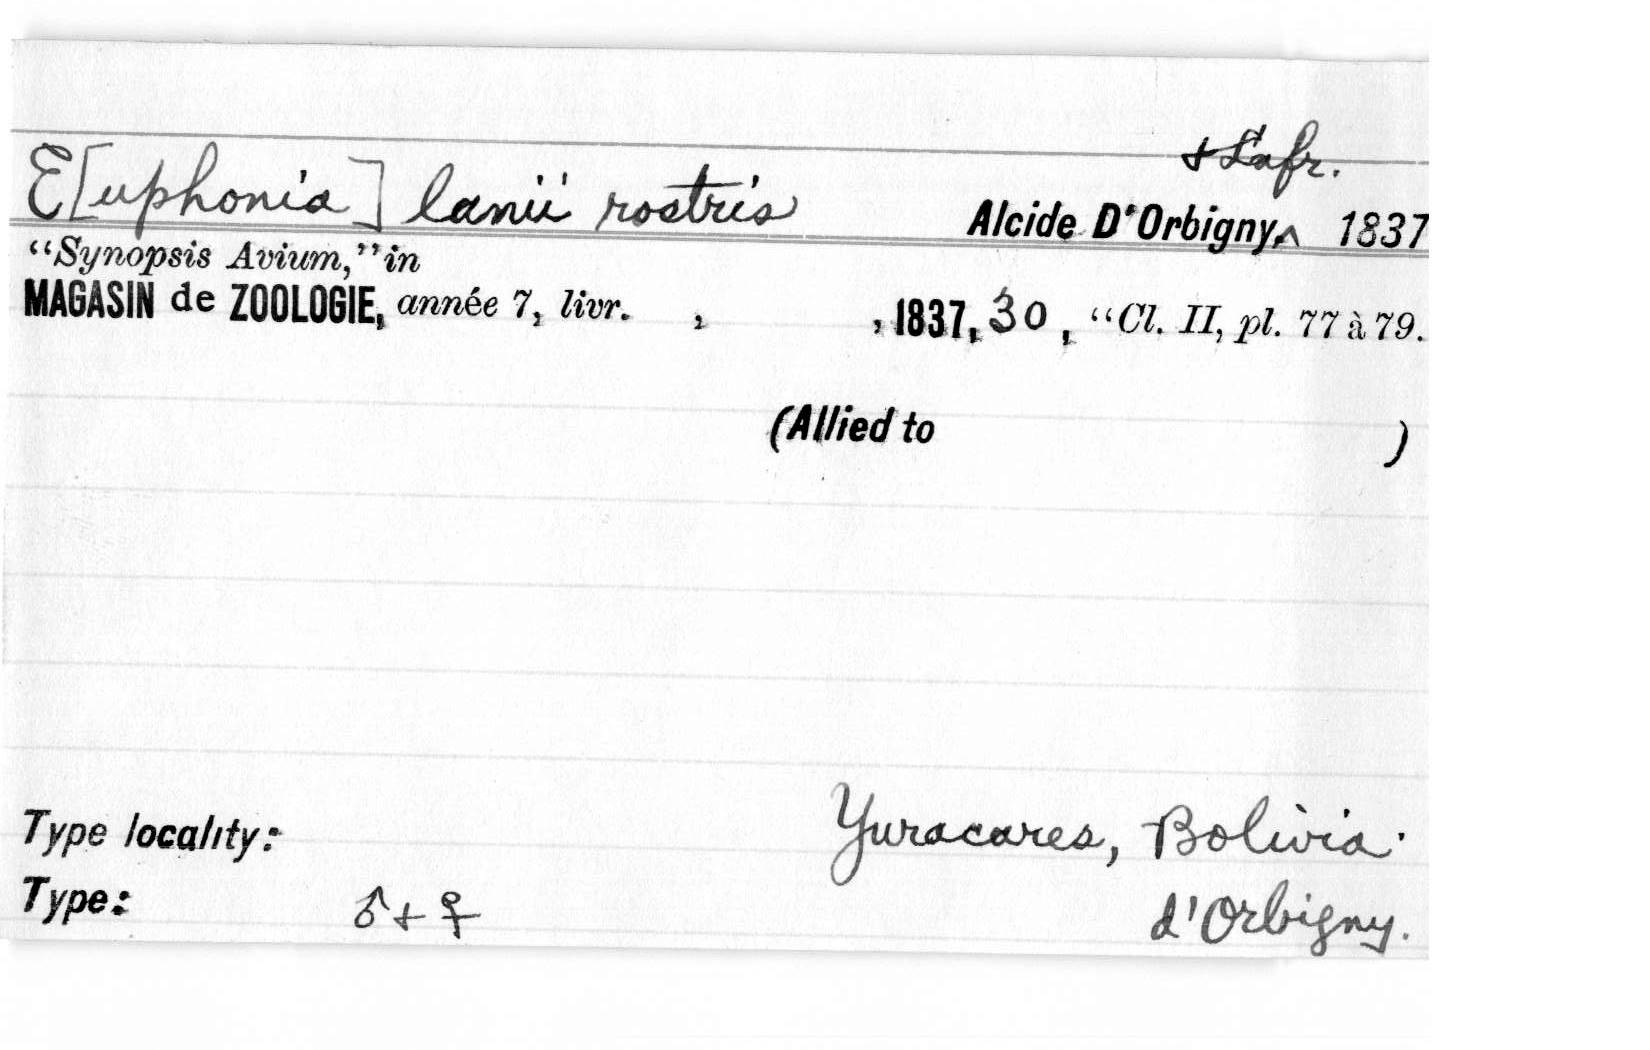 & Lafr.
E[uphonia] lanii rostris Alcide D'Orbigny^ 1837
“Synopsis Avium,” in
MAGASIN de ZOOLOGIE, année 7, livr. , , 1837, 30 , “Cl. II, pl. 77 à 79.
(Allied to )
Type locality: Yuracares, Bolivia.
Type: ♂ + ♀ d'Orbigny.